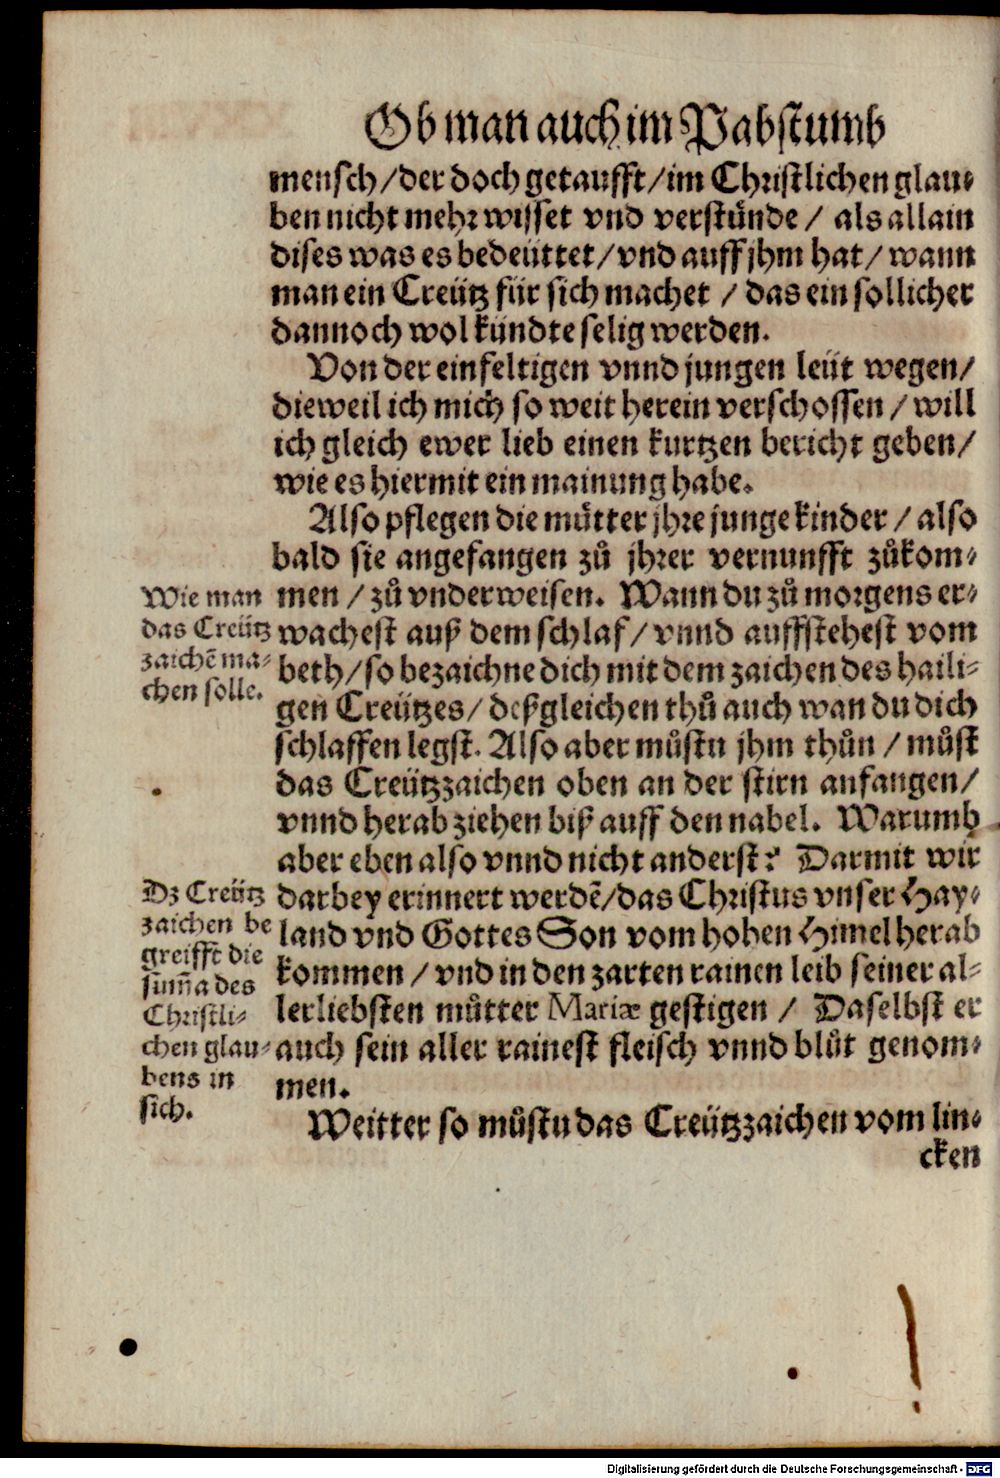 Ob man auch im Pabstumb
mensch/der doch getaufft/im Christlichen glau-
ben nicht mehr wisset vnd verstünde/ als allain
dises was es bedeüttet/vnd auff jhm hat/wann
man ein Creütz für sich machet / das ein sollicher
dannoch wol kündte selig werden.
Von der einfeltigen vnnd jungen leüt wegen/
dieweil ich mich so weit herein verschossen/will
ich gleich ewer lieb einen kurtzen bericht geben/
wie es hiermit ein mainung habe.
Also pflegen die mütter jhre junge kinder/also
bald sie angefangen zů jhrer vernunfft zůkom-
men / zů vnderweisen. Wann du zů morgens er-
wachest auß dem schlaf/vnnd auffstehest vom
beth/so bezaichne dich mit dem zaichen des haili-
gen Creützes/ deßgleichen thů auch wan du dich
schlaffen legst. Also aber můstu jhm thůn / můst
das Creützzaichen oben an der stirn anfangen/
vnnd herab ziehen biß auff den nabel. Warumb
aber eben also vnnd nicht anderst? Darmit wir
darbey erinnert werdẽ/das Christus vnser Hay-
land vnd Gottes Son vom hohen Himel herab
kommen / vnd in den zarten rainen leib seiner al-
lerliebsten můtter Mariæ gestigen / Daselbst er
auch sein aller rainest fleisch vnnd blůt genom-
men.
Weitter so můstu das Creützzaichen vom lin-
cken
Wie man
das Creütz
zaichẽ ma-
chen solle.
Dz Creütz
zaichen be
greifft die
sum̃a des
Christli-
chen glau-
bens in
sich.
Digitalisierung gefördert durch die Deutsche Forschungsgemeinschaft - DFG